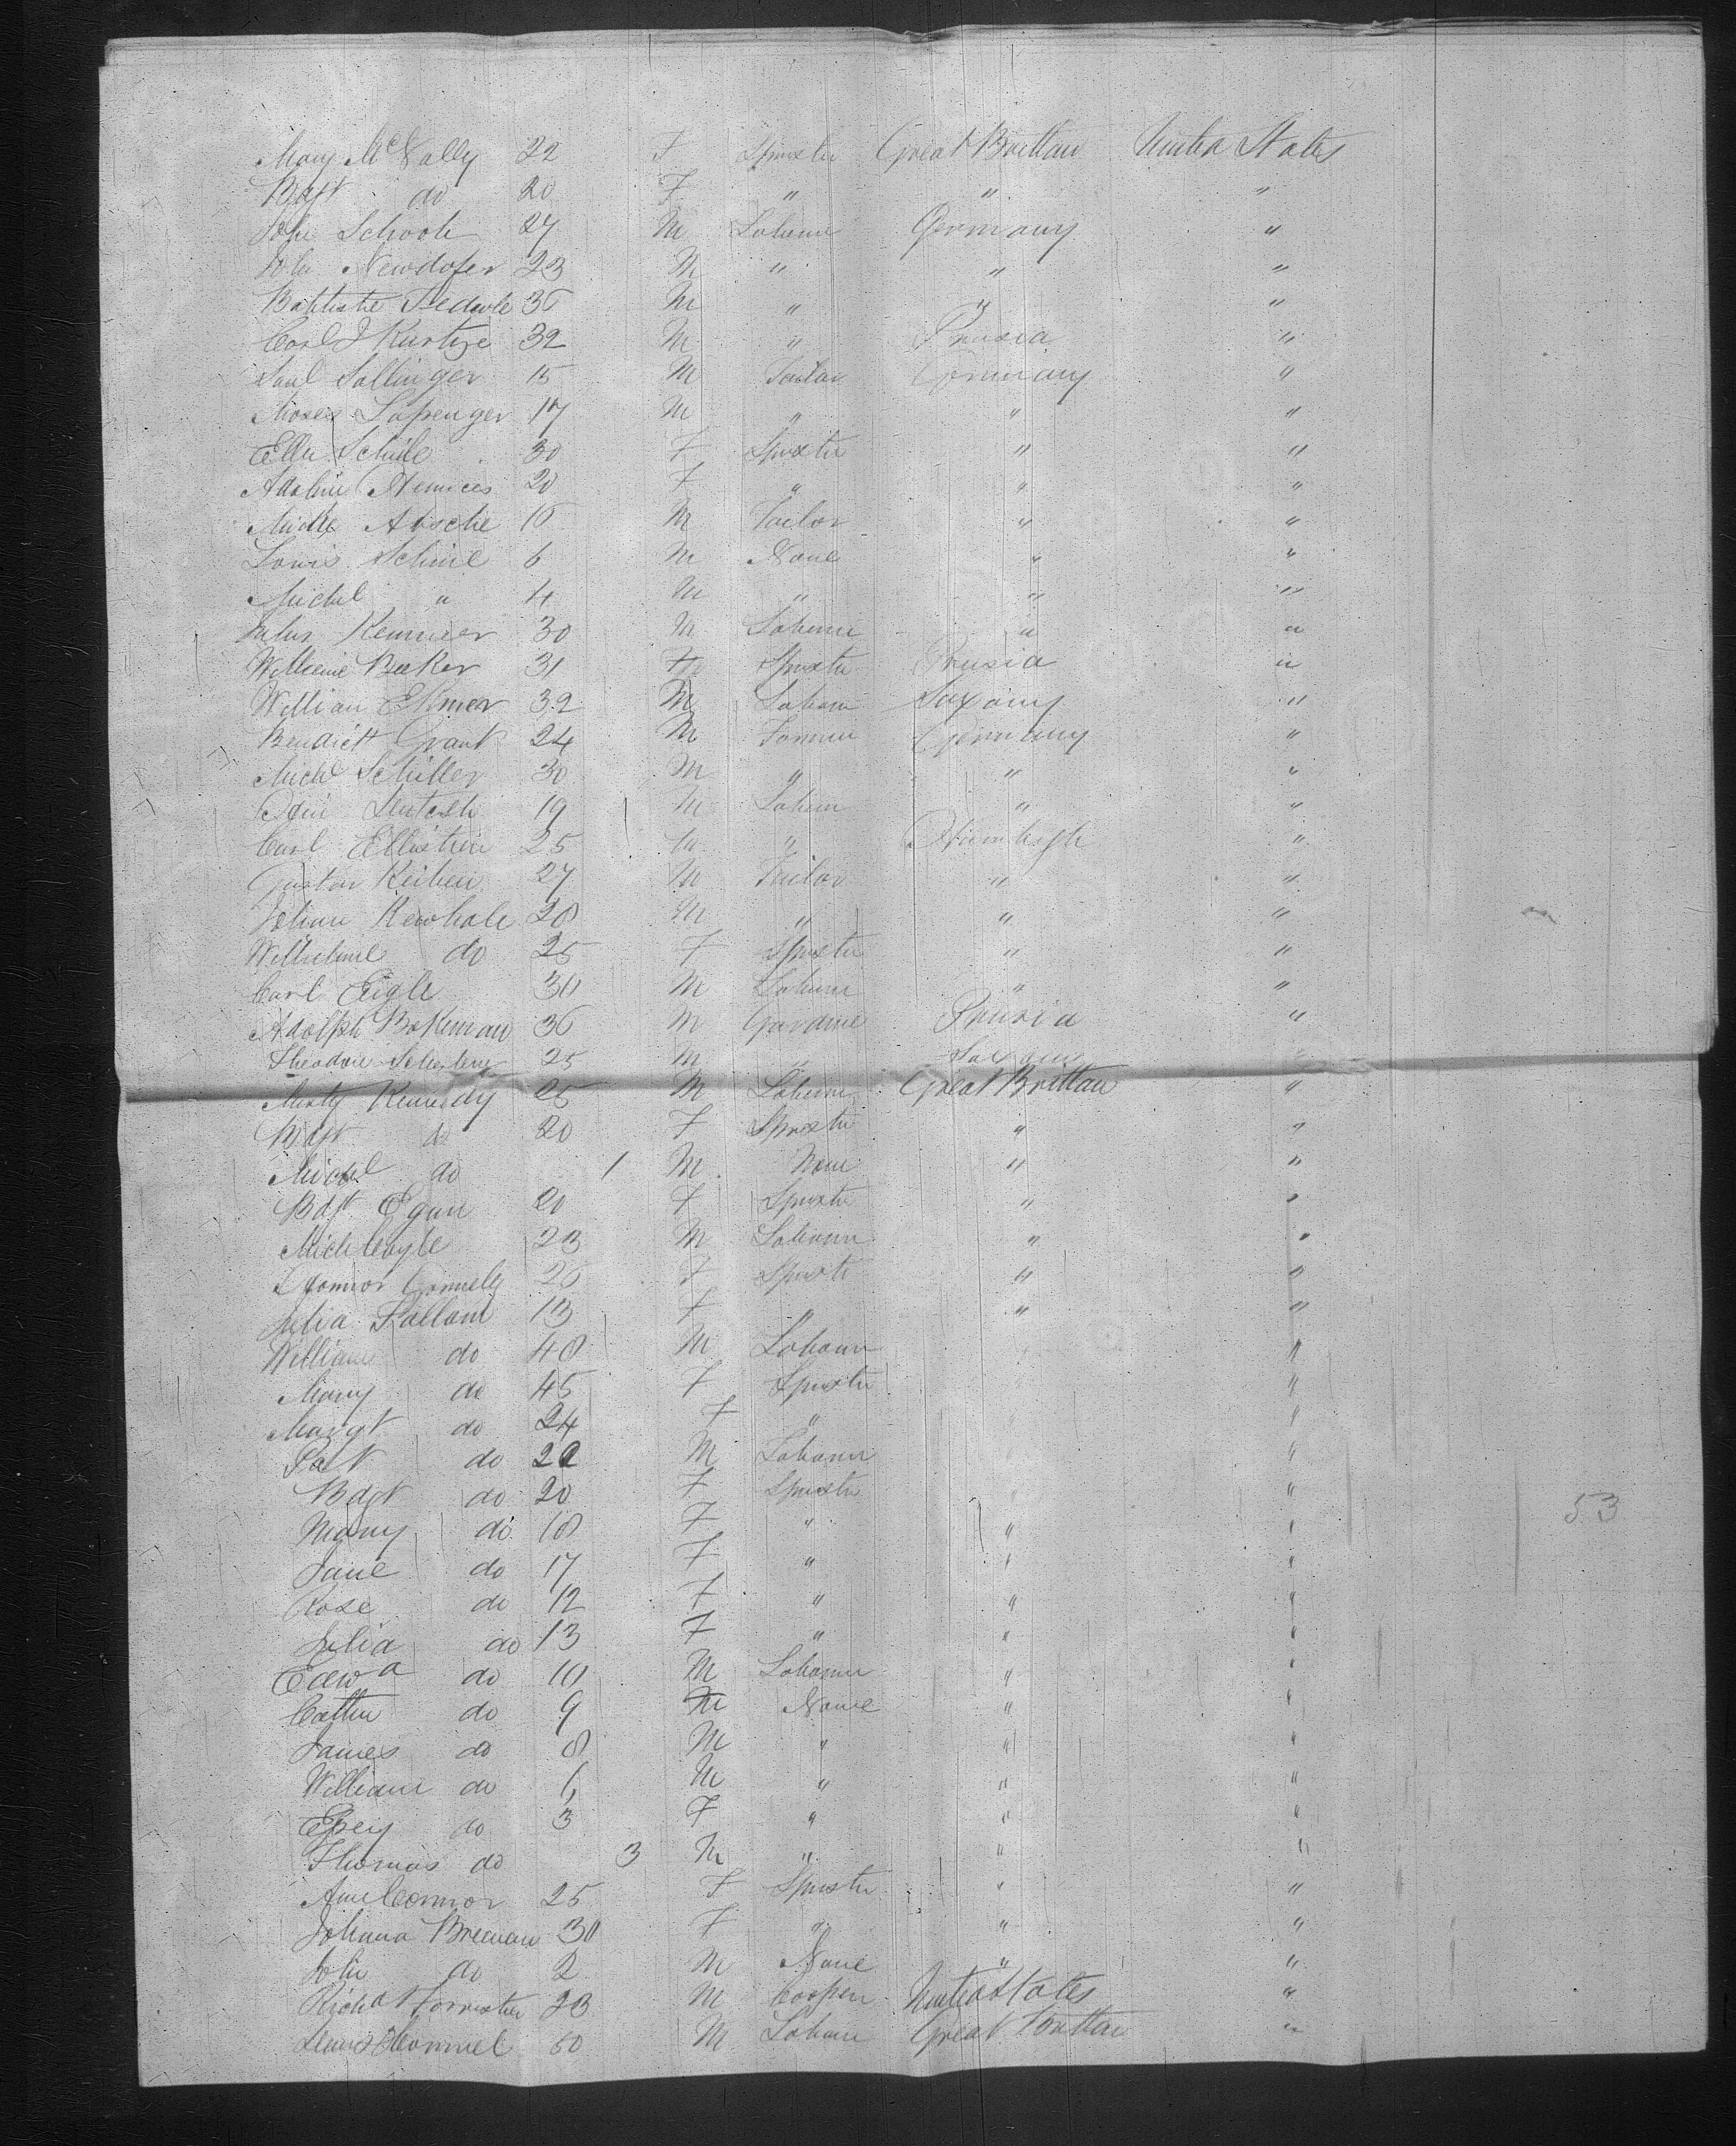 Mary McNally 22 F Spinster Great Brittan United States
Bdgt do 20 F " " "
John Schoole 27 M Laborer Germany "
John Newdofer 23 M " " "
Battiste 36 M " " "
Carl J Kurtze 32 M " Prusia "
Saul Sallinger 15 M Tailor Germany "
Moses Sapenger 17 M " " "
Ellen Schiile 30 F Spinster " "
Adoline 20 F " " "
Absche 16 M Tailor " "
Louis Schiile 6 M None " "
Michl " 4 M " " "
Kemmer 30 M Laborer " "
Beeker 31 F Spinster Prusia "
William Elmer 32 M Laborer Saxony "
Benedict Grant 24 M Farmer Germany "
Michl Schiller 30 M " " "
19 M Laborer " "
Carl Ellistein 25 M " "
Gustav 27 M Tailor " "
Johan Rewhale 28 M " " "
Wilhelmine do 25 F Spinster " "
Carl Eigle 30 M Laborer " "
Adolph Bokeman 36 M Gardner Prusia "
Theodore 25 M " Saxony "
Kennedy 25 M Laborer Great Brittan "
Bdgt do 20 F Spinster " "
Michl do 1 M None " "
Bdgt Egan 20 F Spinster " "
Mich Coyle 23 M Laborer " "
Connely 26 F Spinster " "
Julia Fallam 13 F " " "
William do 48 M Laborer "
Mary do 45 F Spinster "
Margt do 24 F " "
Pat do 22 M Laborer "
Bdgt do 20 F Spinster " "
53
Mary do 18 F " " "
Jane do 17 F " " "
Rose do 12 F " " "
Julia do 13 F " " "
Edwd do 10 M Laborer " "
Cathn do 9 None " "
James do 8 M " " "
William do 6 M " " "
do 3 F " " "
Thomas do 3 M " " "
Ann Connor 25 F Spinster " "
Johana Brenan 30 F " " "
John do 2 M None " "
Richd Forrester 23 M Cooper United States "
60 M Laborer Great Brittan "